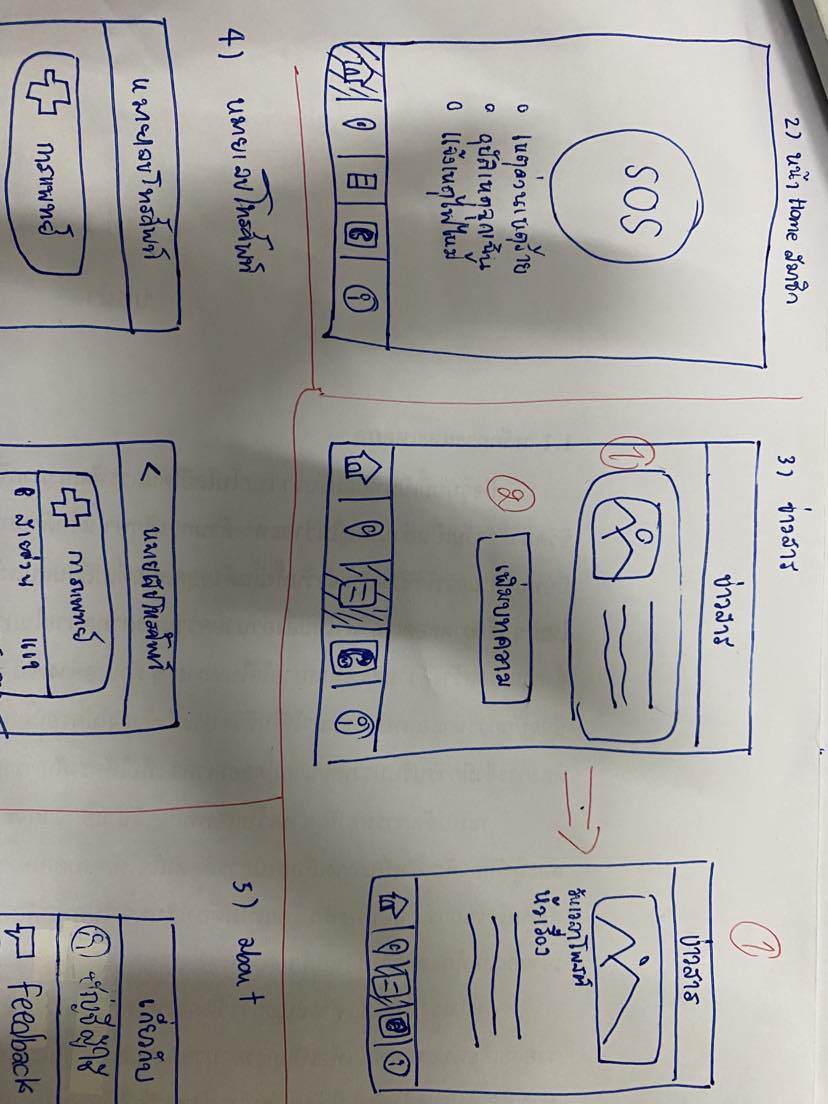 2) หน้า Home สมาชิก
SOS
เหตุด่วนเหตุร้าย
อุบัติเหตุฉุกเฉิน
แจ้งเหตุไฟไหม้
3) ข่าวสาร
ข่าวสาร
1
2
เพิ่มบทความ
1
ข่าวสาร
วันเวลาโพสต์
หัวเรื่อง
4) หมายเลขโทรศัพท์
หมายเลขโทรศัพท์
การแพทย์
< หมายเลขโทรศัพท์
การแพทย์
สายด่วน 1669
5) about
เกี่ยวกับ
บัญชีผู้ใช้
feedback